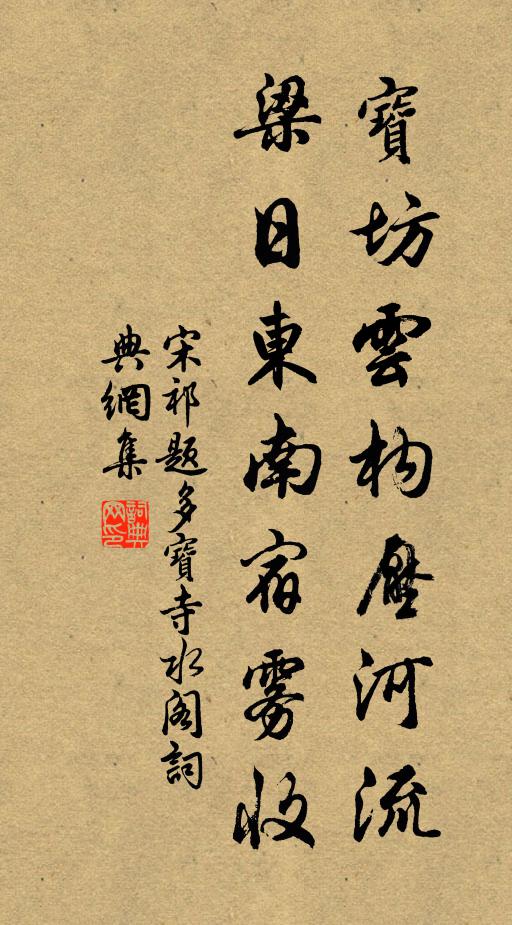 寶坊雲构壓河流
梁日東南宿雾收
宋祁题多寶寺水阁詞
典網集
詞典
网印